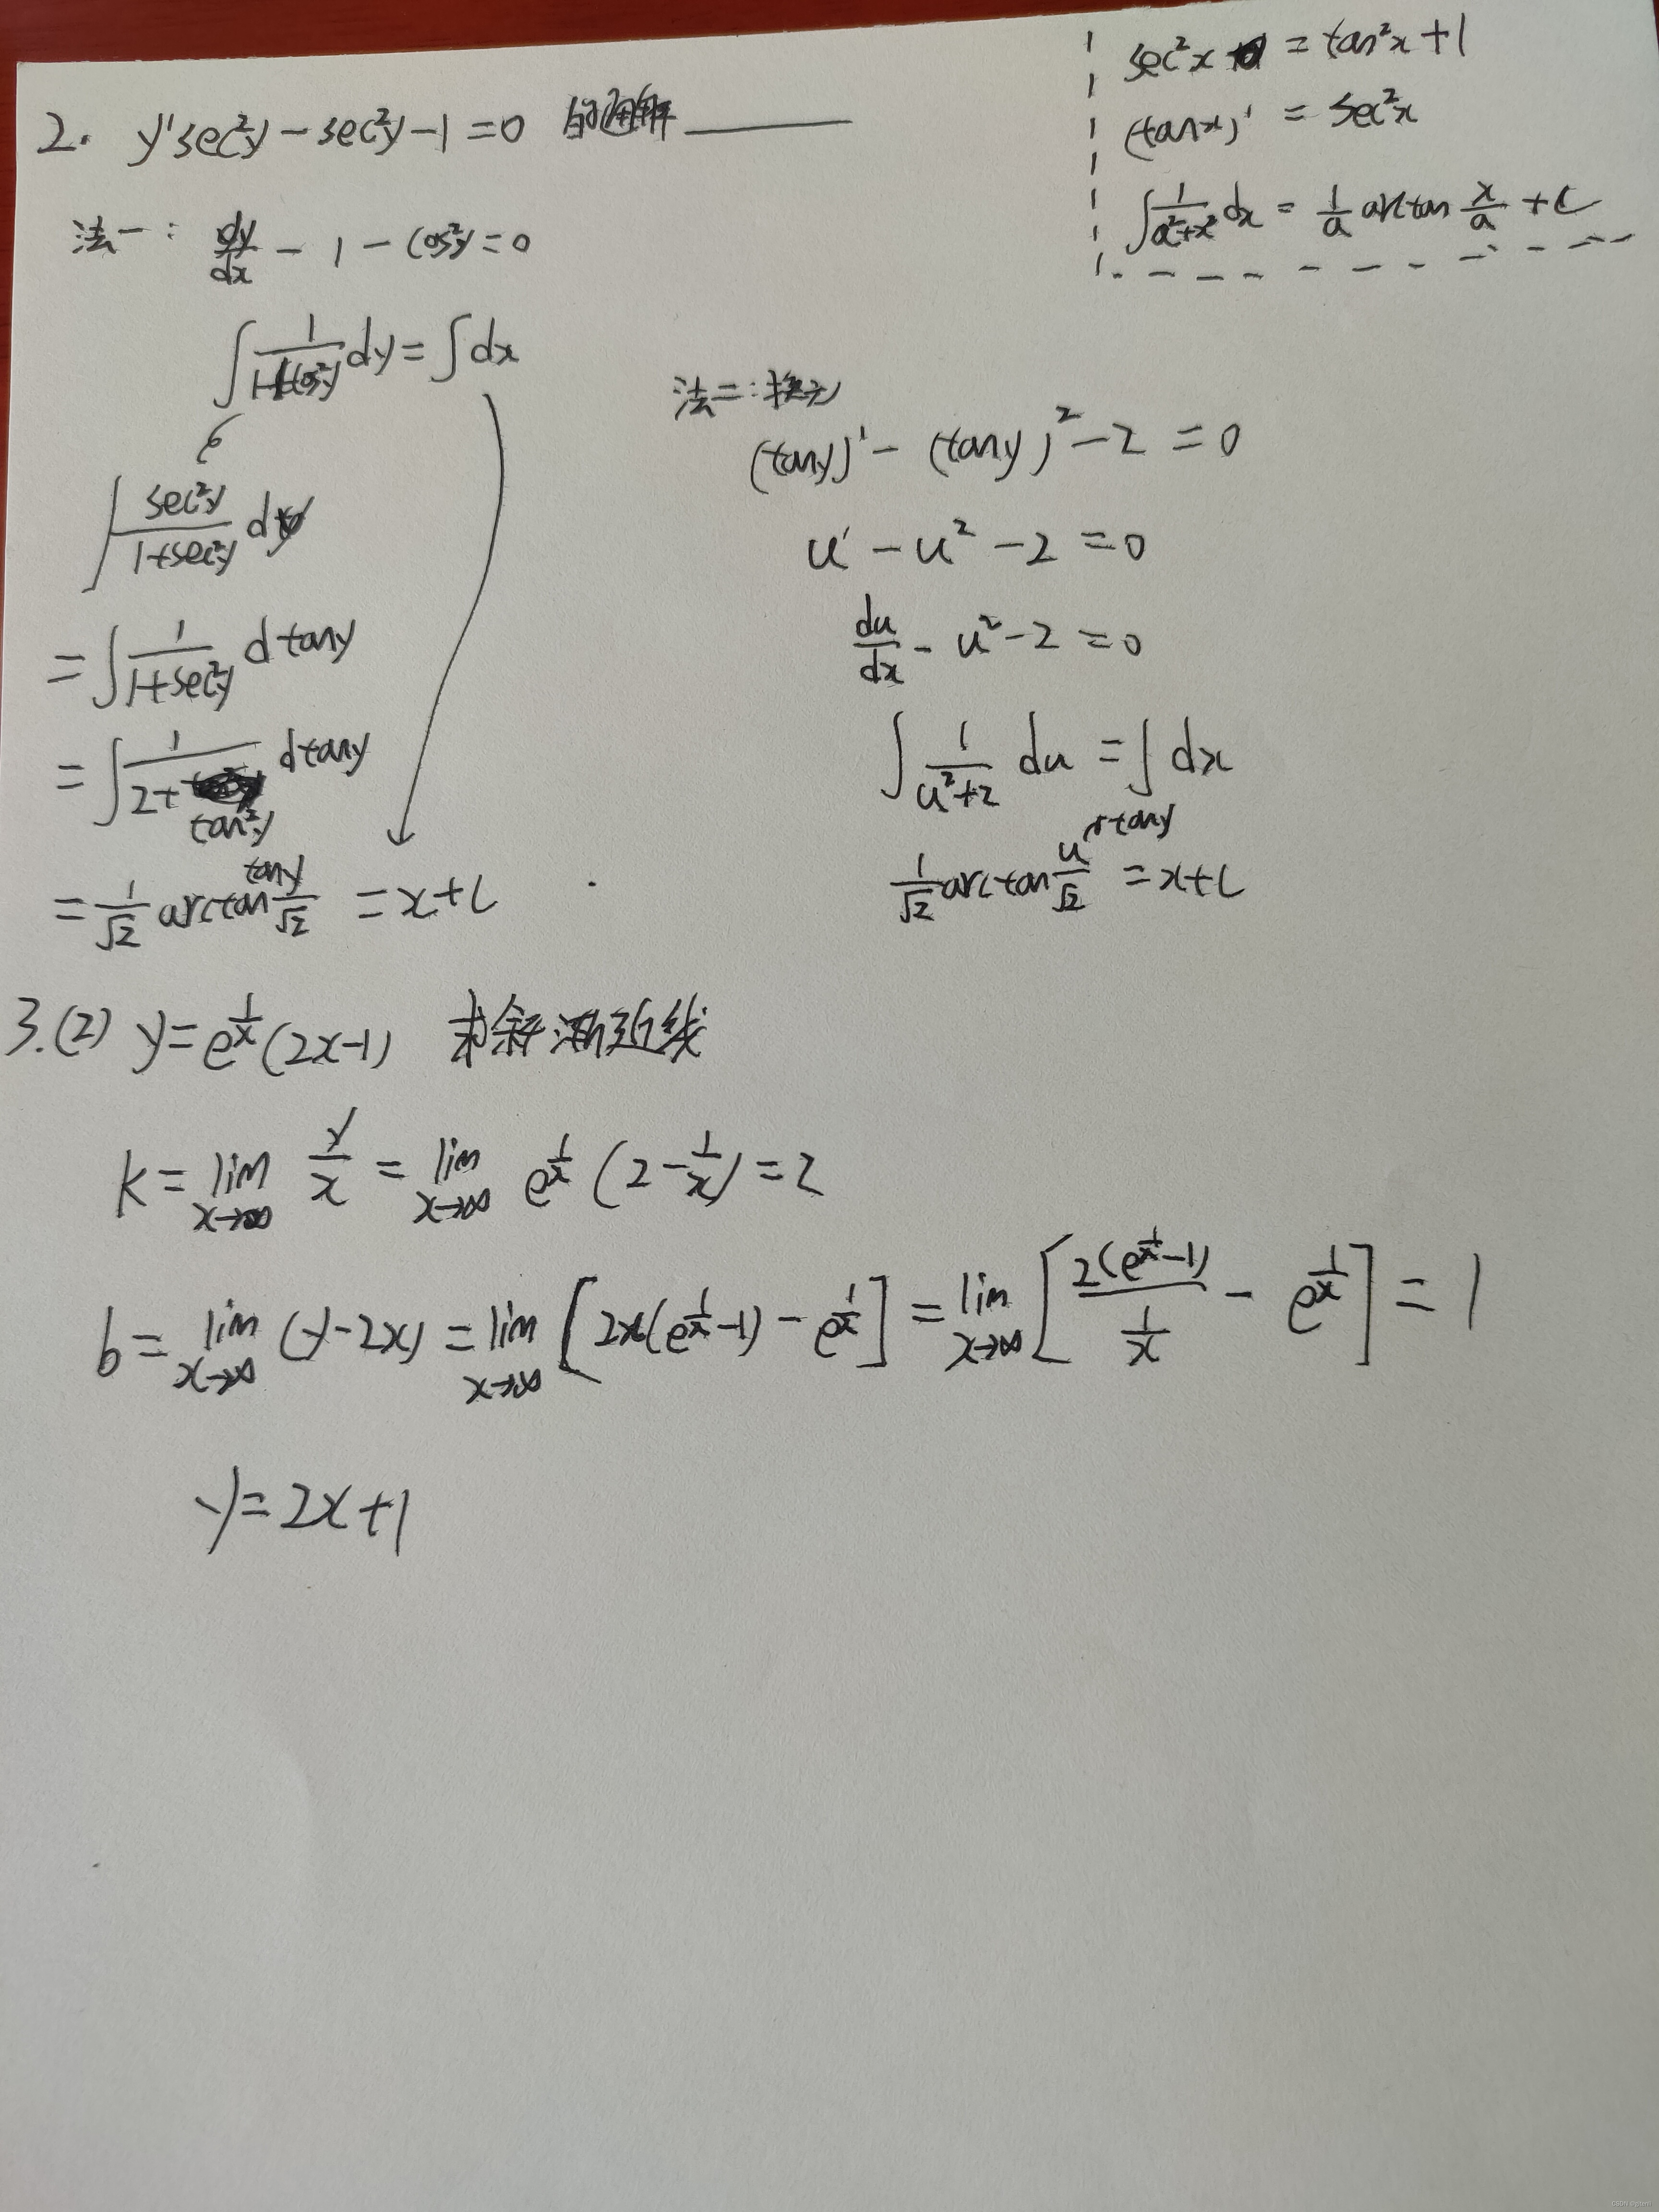 2. y'sec²y - sec²y - 1 = 0 的通解 ______
sec²x = tan²x + 1
(tanx)' = sec²x
∫ 1/(a²+x²) dx = 1/a arctan x/a + C
法一: dy/dx - 1 - cos²y = 0
∫ 1/(1+cos²y) dy = ∫ dx
∫ sec²y/(1+sec²y) dy
= ∫ 1/(1+sec²y) d tany
= ∫ 1/(2+tan²y) d tany
= 1/√2 arctan tany/√2 = x + C
法二: 换元
(tany)' - (tany)² - 2 = 0
u' - u² - 2 = 0
du/dx - u² - 2 = 0
∫ 1/(u²+2) du = ∫ dx
1/√2 arctan u/√2 = x + C
tany
3.(2) y = e^(1/x) (2x-1) 求斜渐近线
k = lim x→∞ y/x = lim x→∞ e^(1/x) (2 - 1/x) = 2
b = lim x→∞ (y-2x) = lim x→∞ [2x(e^(1/x) - 1) - e^(1/x)] = lim x→∞ [2(e^(1/x) - 1)/(1/x) - e^(1/x)] = 1
y = 2x + 1